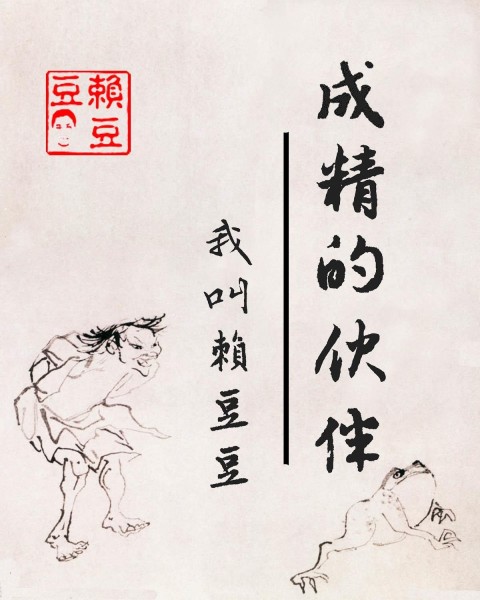 成精的伙伴
我叫賴豆豆
賴豆
豆